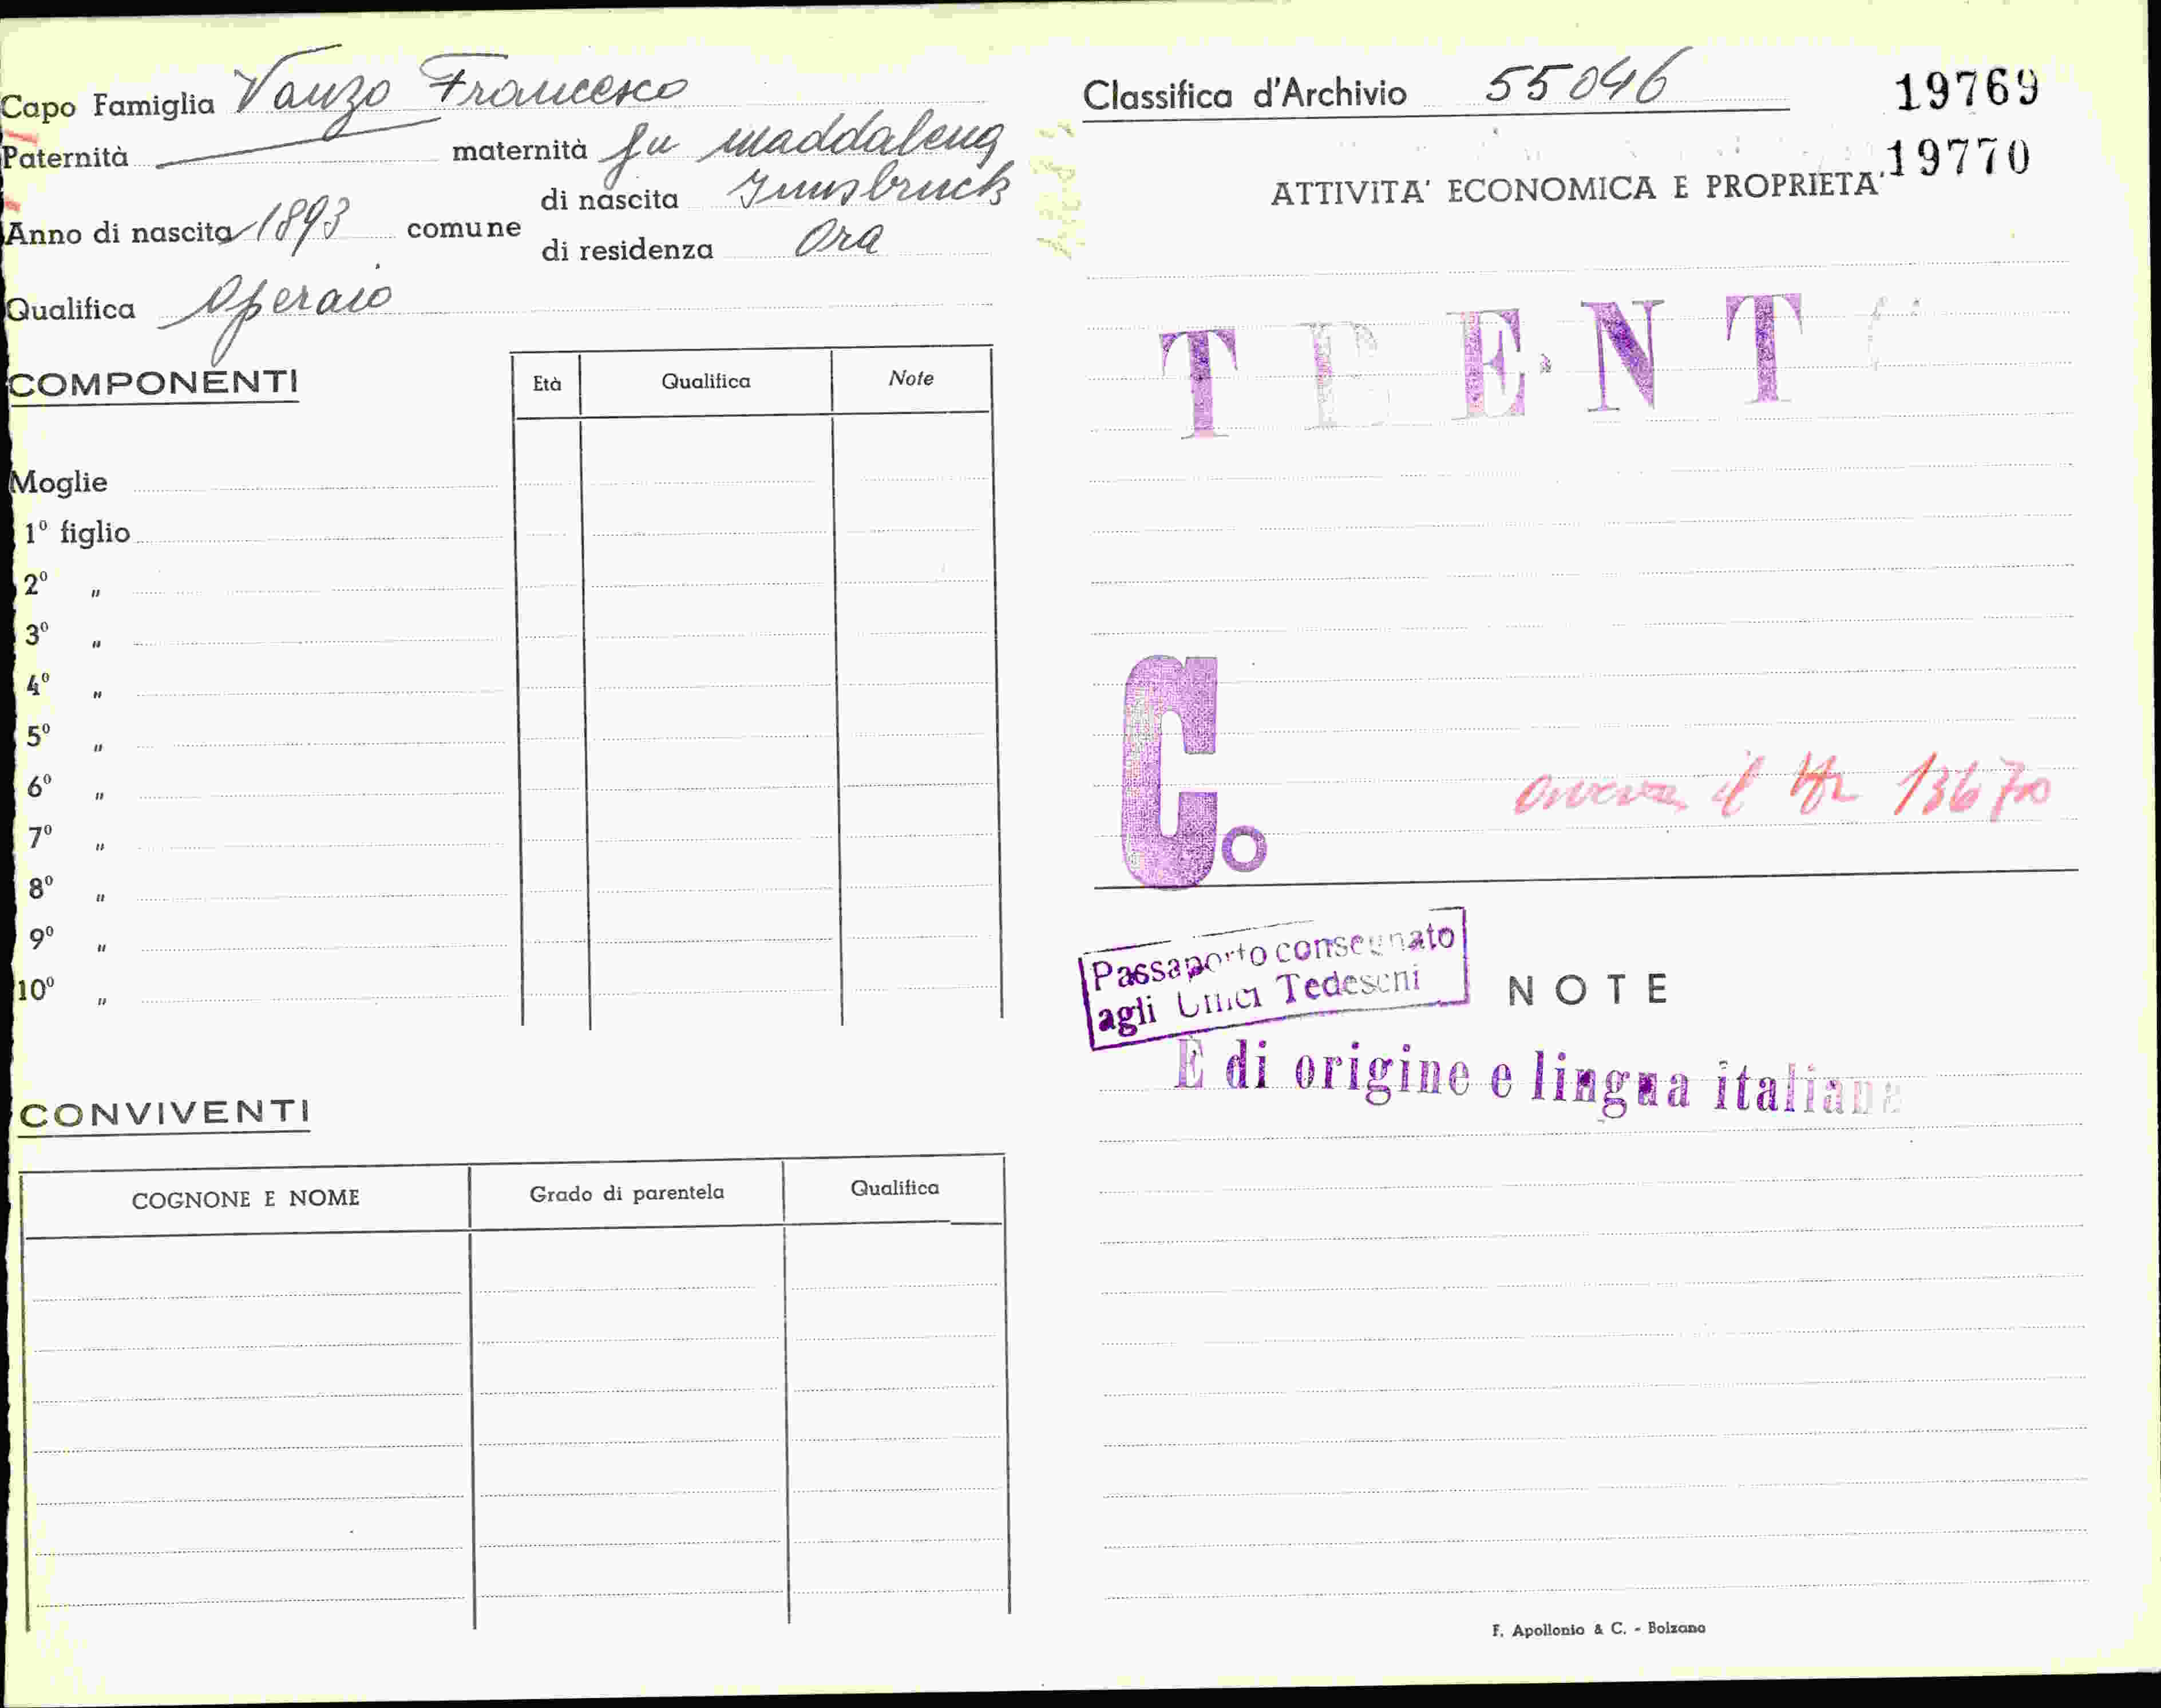 Capo Famiglia Vanzo Francesco
Paternità maternità fu Maddalena
Anno di nascita 1893 comune di nascita Innsbruck
di residenza Ora
Qualifica Operaio
COMPONENTI
Età Qualifica Note
Moglie
1º figlio
2º "
3º "
4º "
5º "
6º "
7º "
8º "
9º "
10º "
CONVIVENTI
COGNONE E NOME Grado di parentela Qualifica
Classifica d'Archivio 55046
19769
19770
ATTIVITA' ECONOMICA E PROPRIETA'
C.
aveva il 13670
Passaporto consegnato
agli Uffici Tedeschi
NOTE
È di origine e lingua italiana
F. Apollonio & C. - Bolzano